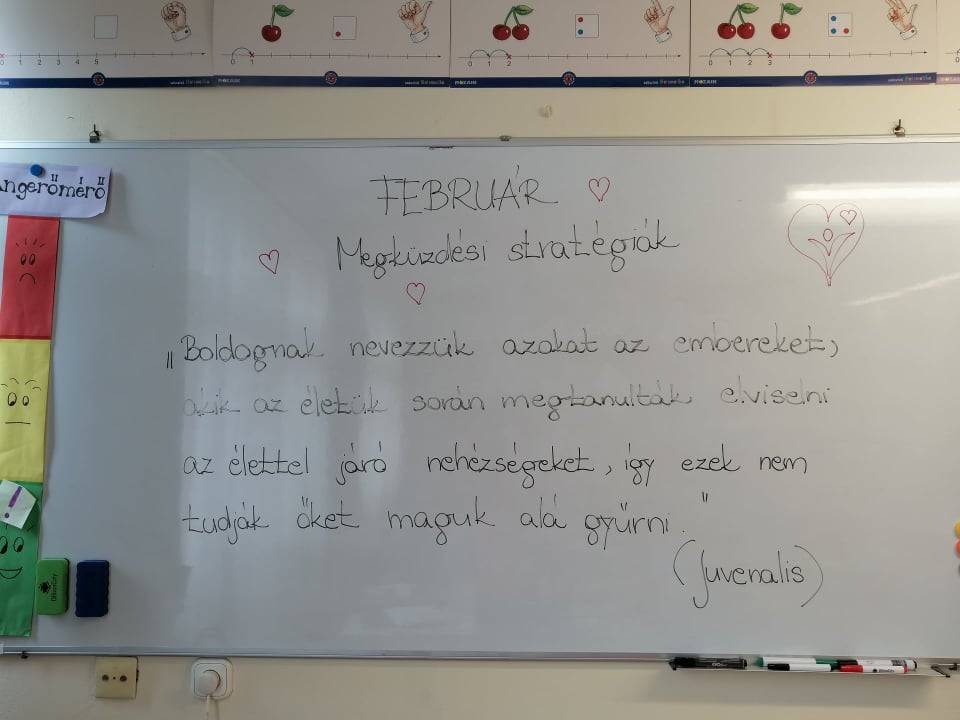 0 1 2 3 4 5
0 1
0 1 2
0 1 2 3
ngerőmérő
FEBRUÁR
Megküzdési stratégiák
„Boldognak nevezzük azokat az embereket,
akik az életük során megtanulták elviselni
az élettel járó nehézségeket, így ezek nem
tudják őket maguk alá gyűrni."
(Juvenalis)